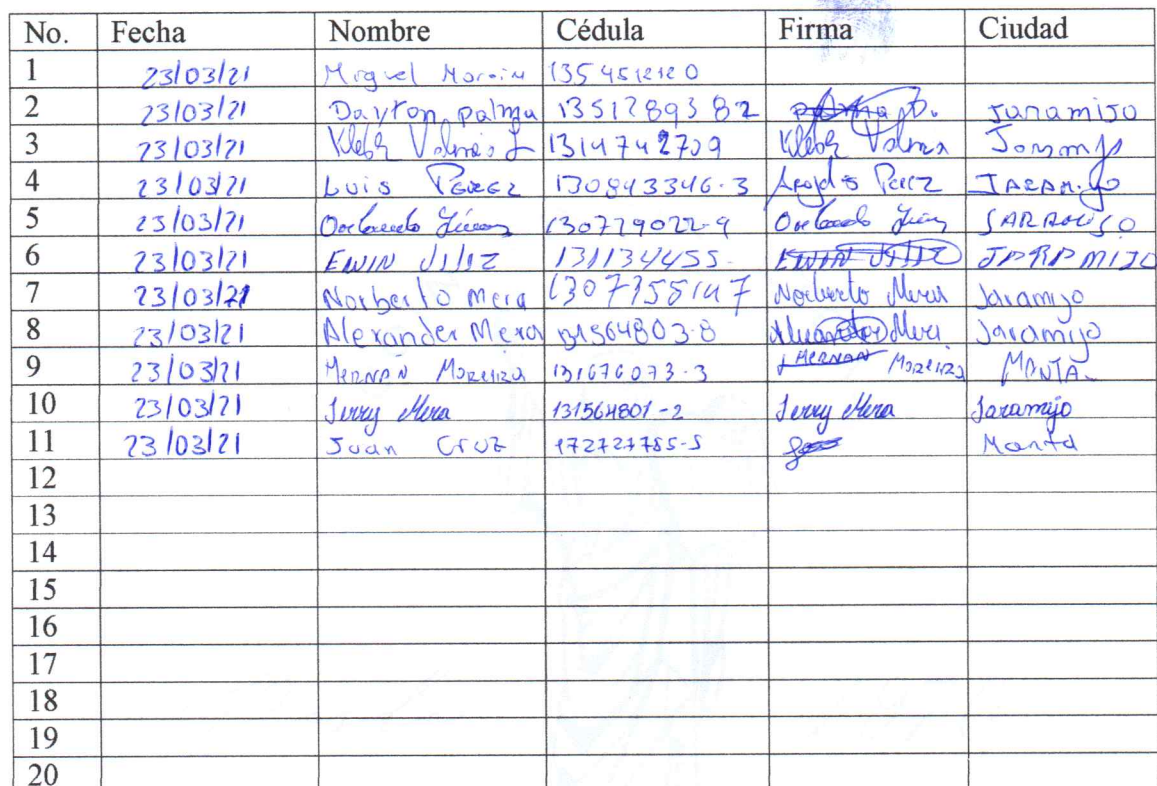 No. Fecha Nombre Cédula Firma Ciudad
1 23/03/21 Miguel
2 23/03/21 Dayton palma 1351289382 palma D. Jaramijo
3 23/03/21 Kleber 1314742709 Kleber
4 23/03/21 Luis Perez 130843346-3 Perez Jaramijo
5 23/03/21 Orlando 130779022-9 Orlando
6 23/03/21 131134455 JARAMIJO
7 23/03/21 Norberto Mera 1307355147 Norberto Mera Jaramijo
8 23/03/21 Alexander Mera 131564803-8 Alexander Mera Jaramijo
9 23/03/21 Hernan Moreira 131676073-3 Hernan Moreira MANTA
10 23/03/21 Jerry Mera 131564801-2 Jerry Mera Jaramijo
11 23/03/21 Juan Cruz 172727785-5 Manta
12
13
14
15
16
17
18
19
20